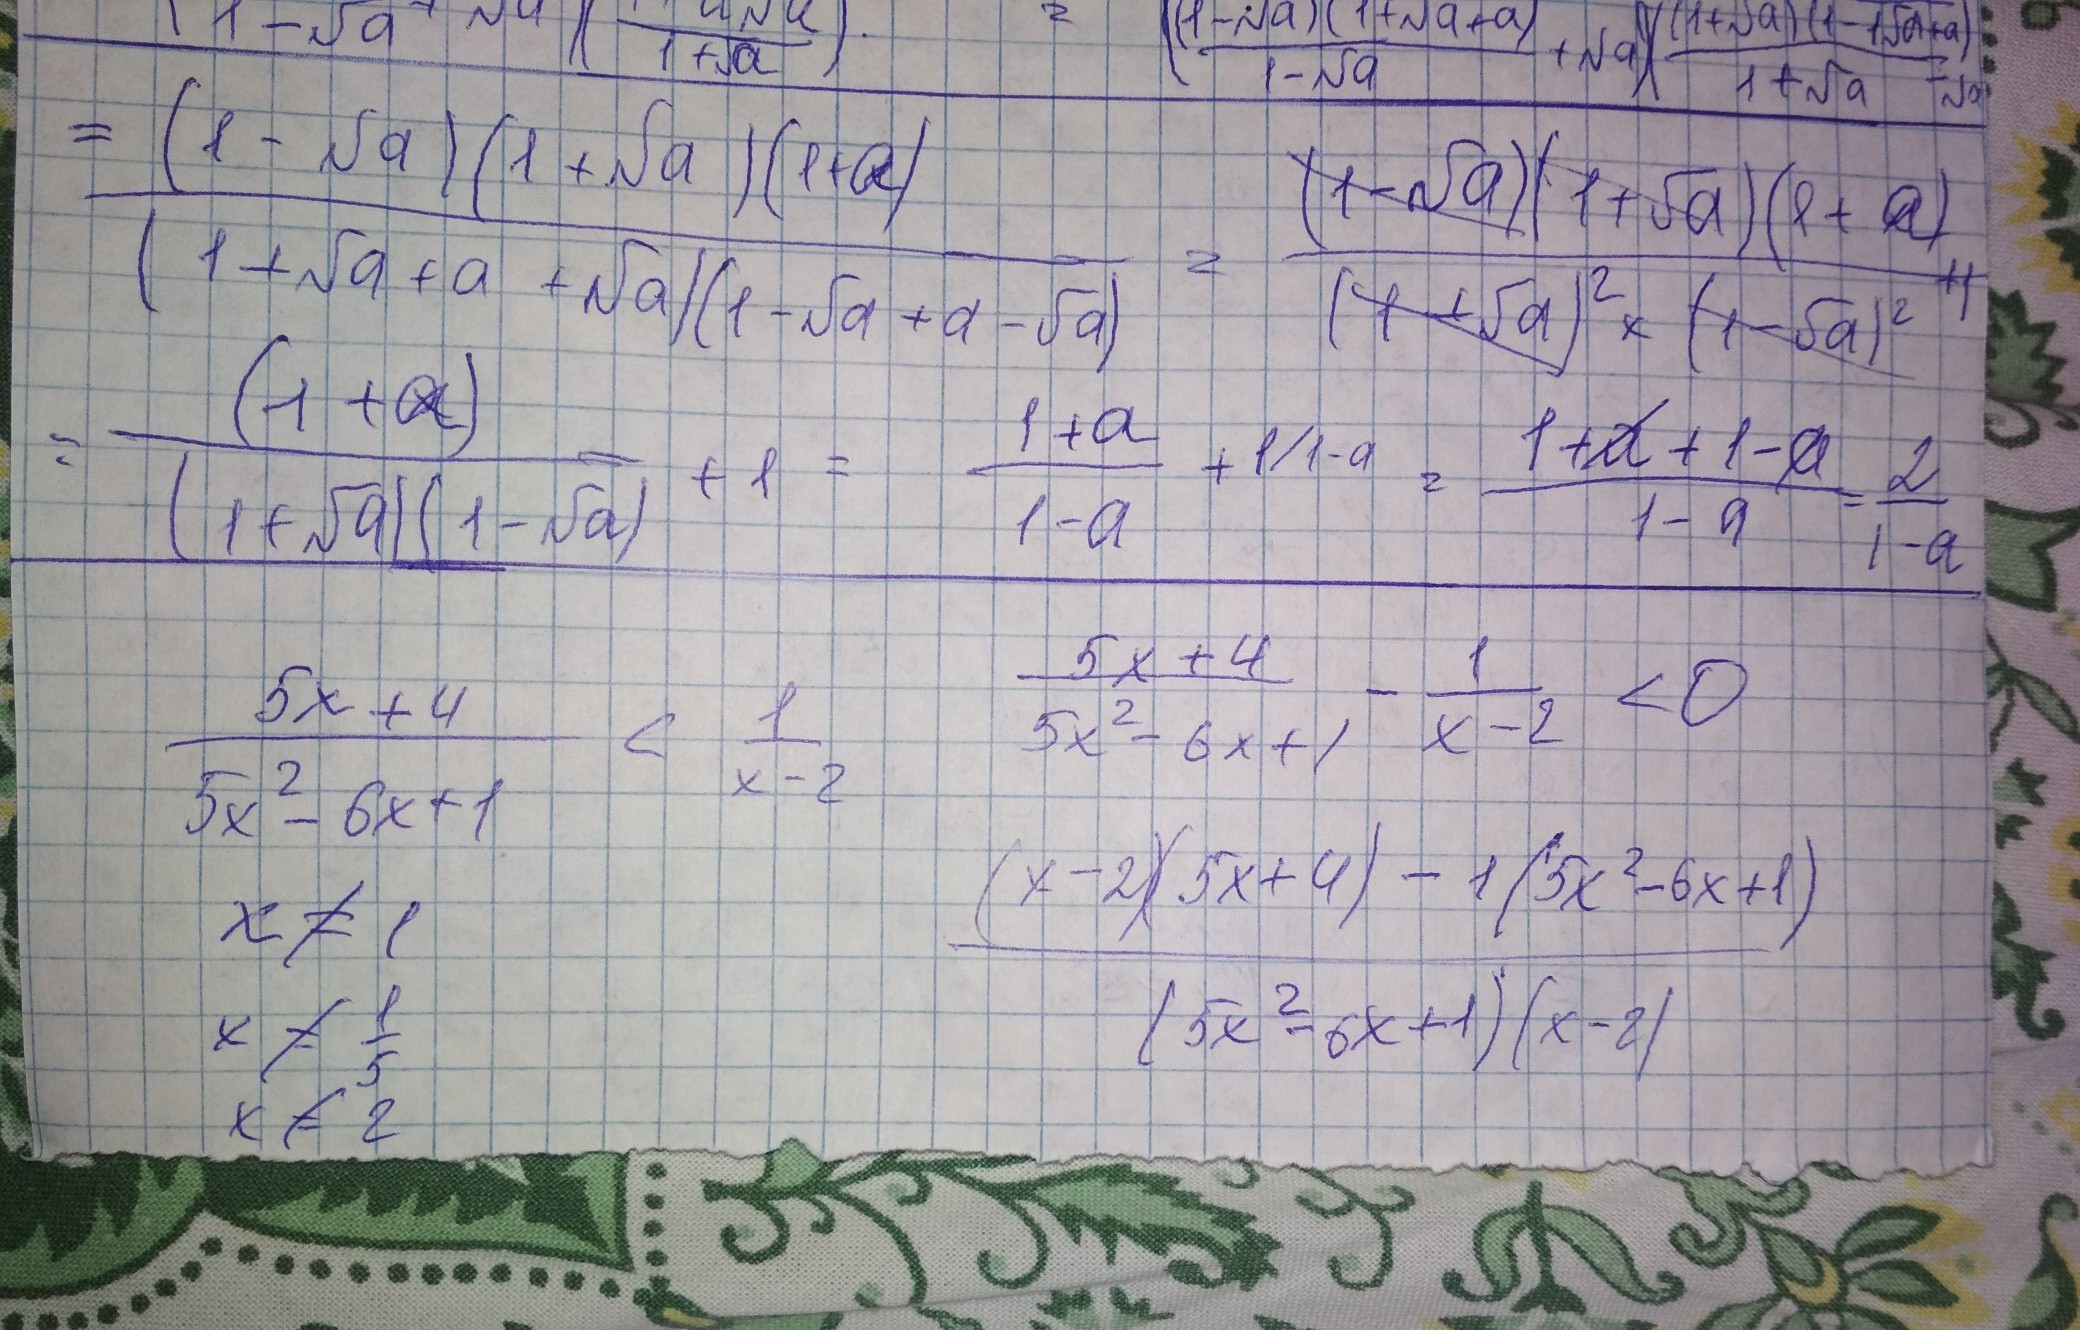 1-√a + √a)( 1+√a ). = ((1-√a)(1+√a+a) / 1-√a + √a)((1+√a)(1-√a+a) / 1+√a - √a
= (1-√a)(1+√a)(1+a) / (1+√a+a+√a)(1-√a+a-√a) = (1-√a)(1+√a)(1+a) / (1+√a)² × (1-√a)² +1
= (1+a) / (1+√a)(1-√a) + 1 = 1+a / 1-a + 1/1-a = 1+a+1-a / 1-a = 2 / 1-a
5x+4 / 5x²-6x+1 < 1 / x-2
x ≠ 1
x ≠ 1/5
x ≠ 2
5x+4 / 5x²-6x+1 - 1 / x-2 < 0
(x-2)(5x+4) - 1(5x²-6x+1) / (5x²-6x+1)(x-2)